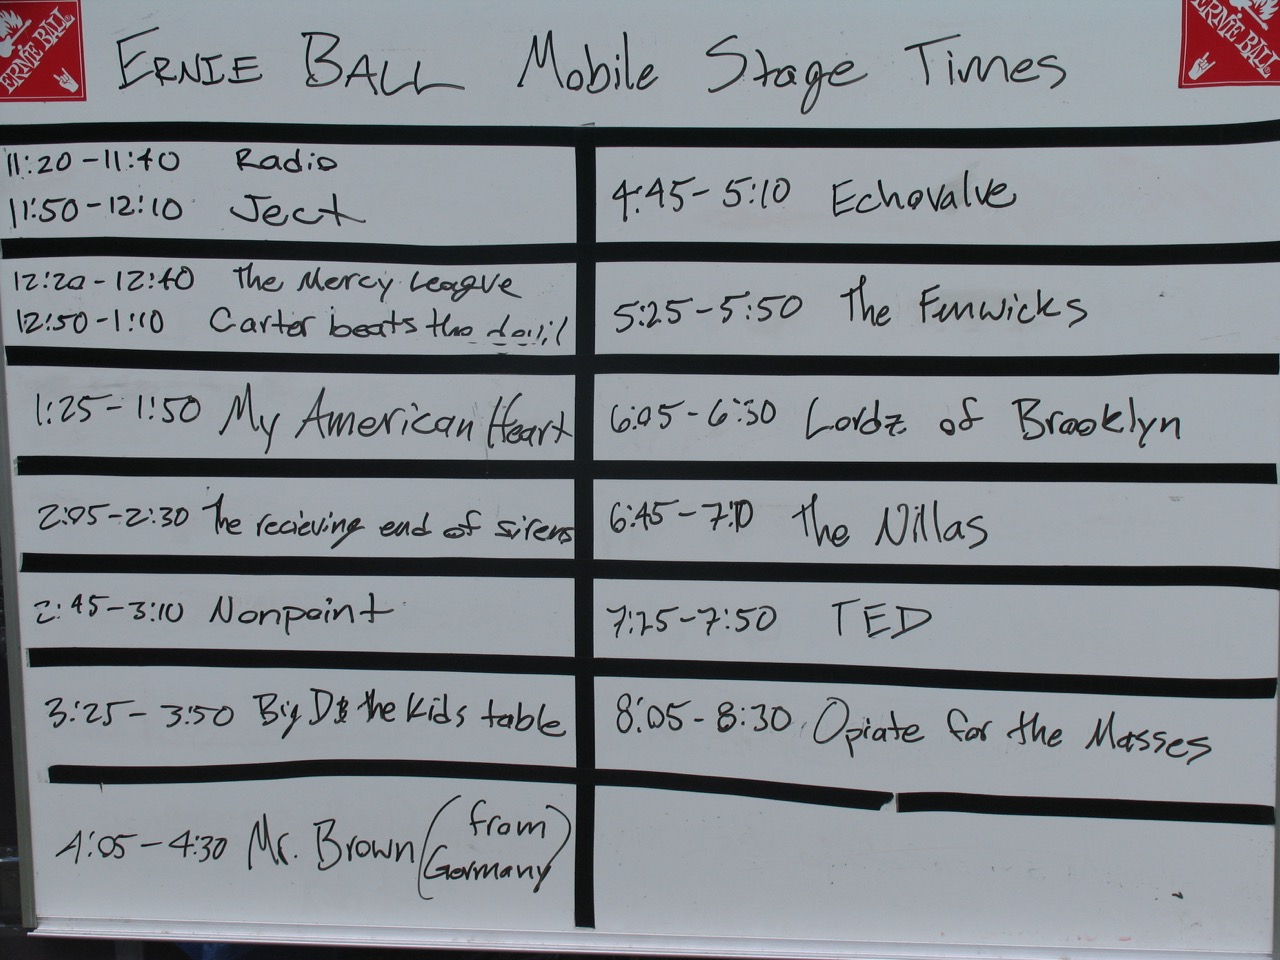 ERNIE BALL
ERNIE BALL
ERNIE BALL Mobile Stage Times
11:20-11:40 Radio
11:50-12:10 Ject
12:20-12:40 the Mercy League
12:50-1:10 Carter beats the devil
1:25-1:50 My American Heart
2:05-2:30 The recieving end of sirens
2:45-3:10 Nonpoint
3:25-3:50 Big D & the Kids table
4:05-4:30 Mr. Brown (from
Germany)
4:45-5:10 Echovalve
5:25-5:50 The Fenwicks
6:05-6:30 Lordz of Brooklyn
6:45-7:10 the Nillas
7:25-7:50 TED
8:05-8:30 Opiate for the Masses